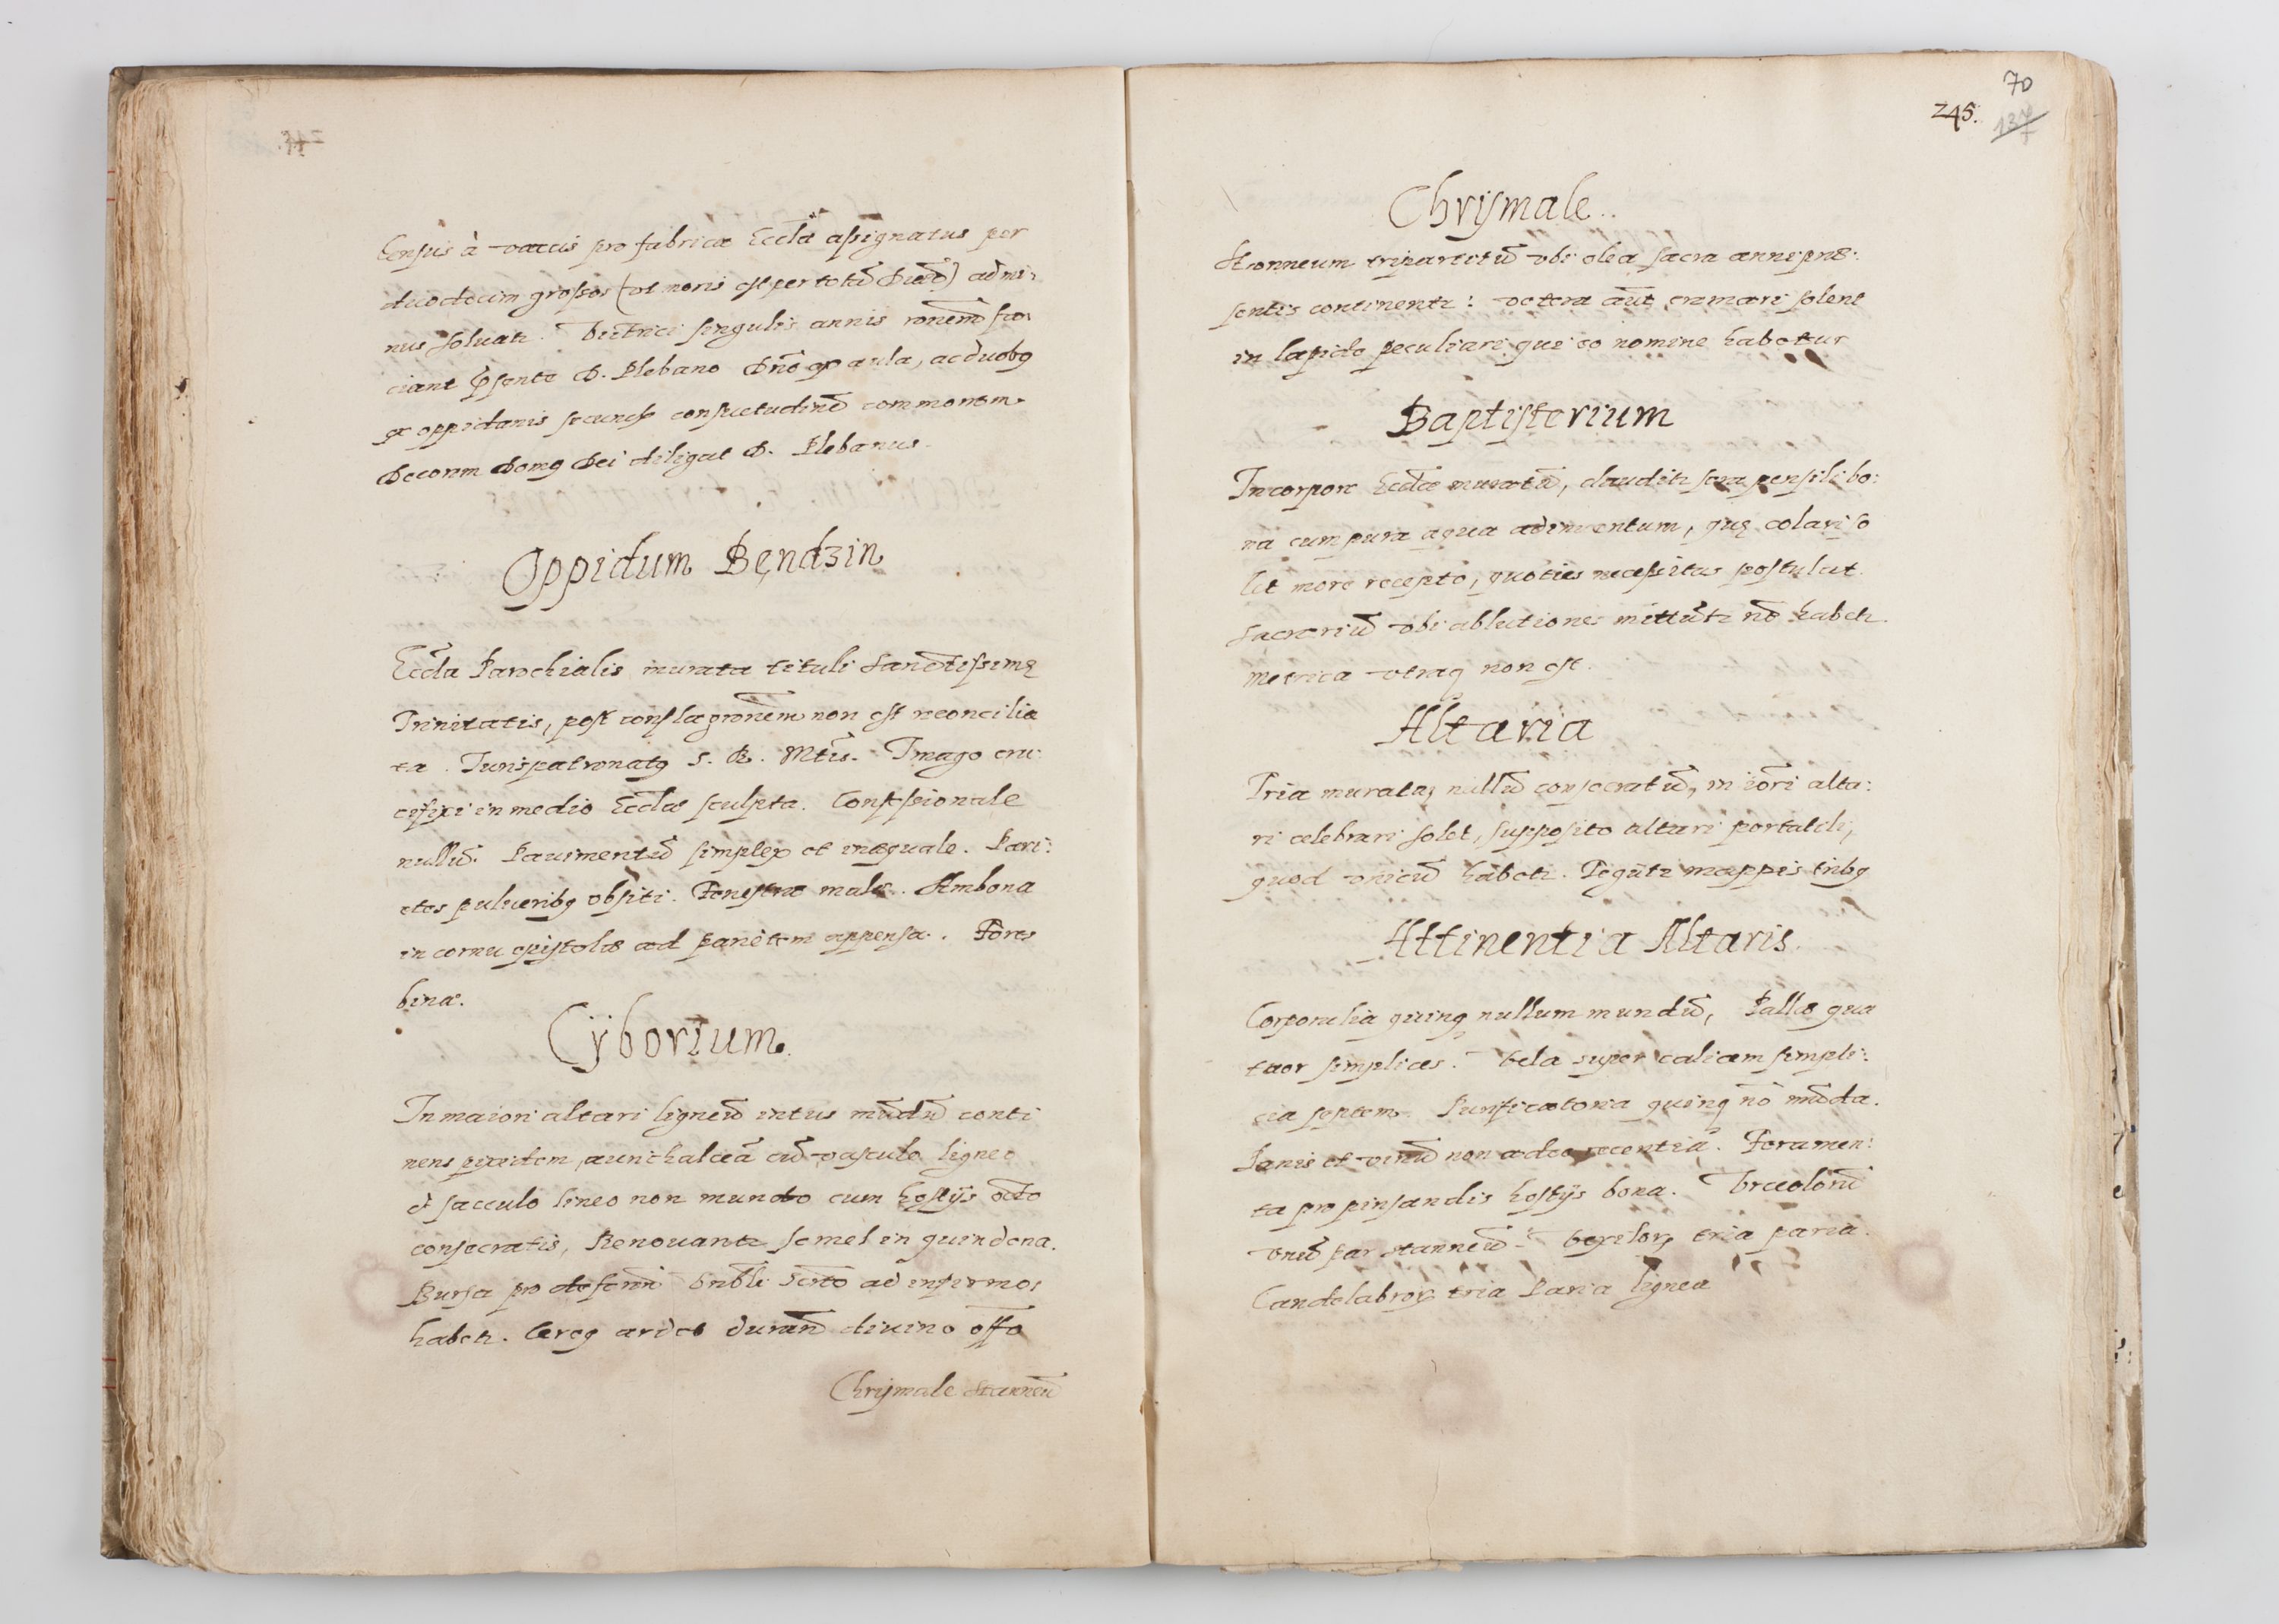 Census à vaccis pro fabrica Eccl̃æ assignatus per
duodecim grossos (ut moris est per totã Diæc̃) ad mi:
nus soluatr. Vitrici singulis annis rõnem fa
ciant p̃sente D. Plebano Dño ex aula, ac duobq
ex oppidanis secund consuetudinẽ commorem.
Decorem Domq Dei diligat D. Plebanus.
Oppidum Bendzin
Eccl̃a Parochialis murata tituli Sanctissimę
Trinitatis, post conflagrõnem non est reconcilia
ta. Jurispatronatq S. R. Mtis. Imago cru:
cifixi in medio Eccl̃æ sculpta. Confessionale
nullũ. Pauimentũ simplex et inæquale. Pari:
etes pulueribq obsiti. Fenestræ malæ. Ambona
in cornu epistolæ ad parietem appensa. Fores
binæ.
Cÿborium.
In maiori altari ligneũ intus mũdũ conti
nens pixidem aurichalceã cũ vasculo ligneo
et sacculo lineo non mundo cum hostijs octo
consecratis, Renouantr semel in quindena.
Bursa pro deferen̄ Vnbli Scrto ad infirmos
habetr. Cereq ardet duran̄ diuino offo
Chrÿmale stanneũ
70
245. 137
Chrÿmale
Stanneum tripartitũ ubi olea sacra anni præ:
sentis continentr: vetera aũt cremari solent
in lapide peculiari qui eo nomine habetur
Baptisterium
In corpore Eccl̃æ muratũ, clauditr sera pensili bo:
na cum pura aqua adinuentum, quę colari so
let more recepto, quoties necessitas postulat.
Sacrariũ ubi ablutiones mittũtr nõ habetr.
Metrica utraq non est.
Altaria
Tria murata, nullũ consecratũ, in iõri alta:
ri celebrari solet, supposito altari portatili,
quod unicũ habetr. Tegũtr mappis tribq
Attinentia Altaris
Corporalia quinq nullum mundũ, Pallæ qua
tuor simplices. Vela super calicem simpli:
cia septem. Purificatoria quinq nõ mũda.
Panis et vinũ non adeo recentia. Feramen:
ta pro pinsandis hostijs bona. Vrceolorũ
unũ par stanneũ. Vexilorũ tria paria.
Candelabrorũ tria Paria lignea